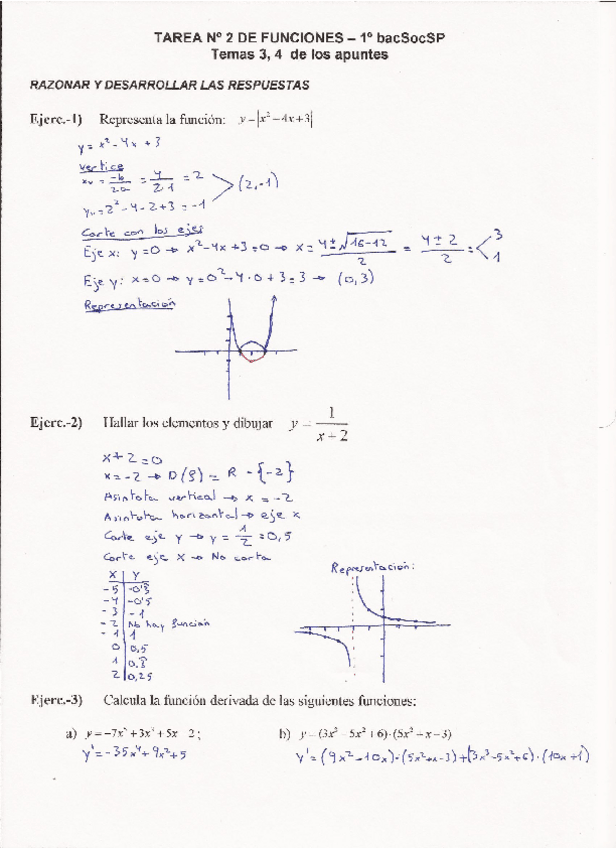 TAREA Nº 2 DE FUNCIONES – 1º bacSocSP
Temas 3, 4 de los apuntes
RAZONAR Y DESARROLLAR LAS RESPUESTAS
Ejerc.-1) Representa la función: y=|x²−4x+3|
y = x² - 4x + 3
vertice
xv = -b/2a = 4/2·1 = 2
(2,-1)
yv = 2² - 4 - 2 + 3 = -1
Corte con los ejes
Eje x: y=0 → x²-4x+3=0 → x = (4±√16-12)/2 = (4±2)/2 = 3
1
Eje y: x=0 → y=0²-4·0+3=3 → (0,3)
Representación
Ejerc.-2) Hallar los elementos y dibujar y = 1/(x+2)
x+2=0
x=-2 → D(f) = R - {-2}
Asintota vertical → x = -2
Asintota horizontal → eje x
Corte eje y → y = 1/2 = 0,5
Corte eje X → No corta
Representación:
X | Y
-5 | -0'3
-4 | -0'5
-3 | -1
-2 | No hay función
-1 | 1
0 | 0,5
1 | 0,3
2 | 0,25
Ejerc.-3) Calcula la función derivada de las siguientes funciones:
a) y=−7x⁵+3x³+5x 2; b) y=(3x³ 5x²+6)·(5x²+x−3)
y'=-35x⁴+9x²+5 y'=(9x²-10x)·(5x²+x-3)+(3x³-5x²+6)·(10x+1)